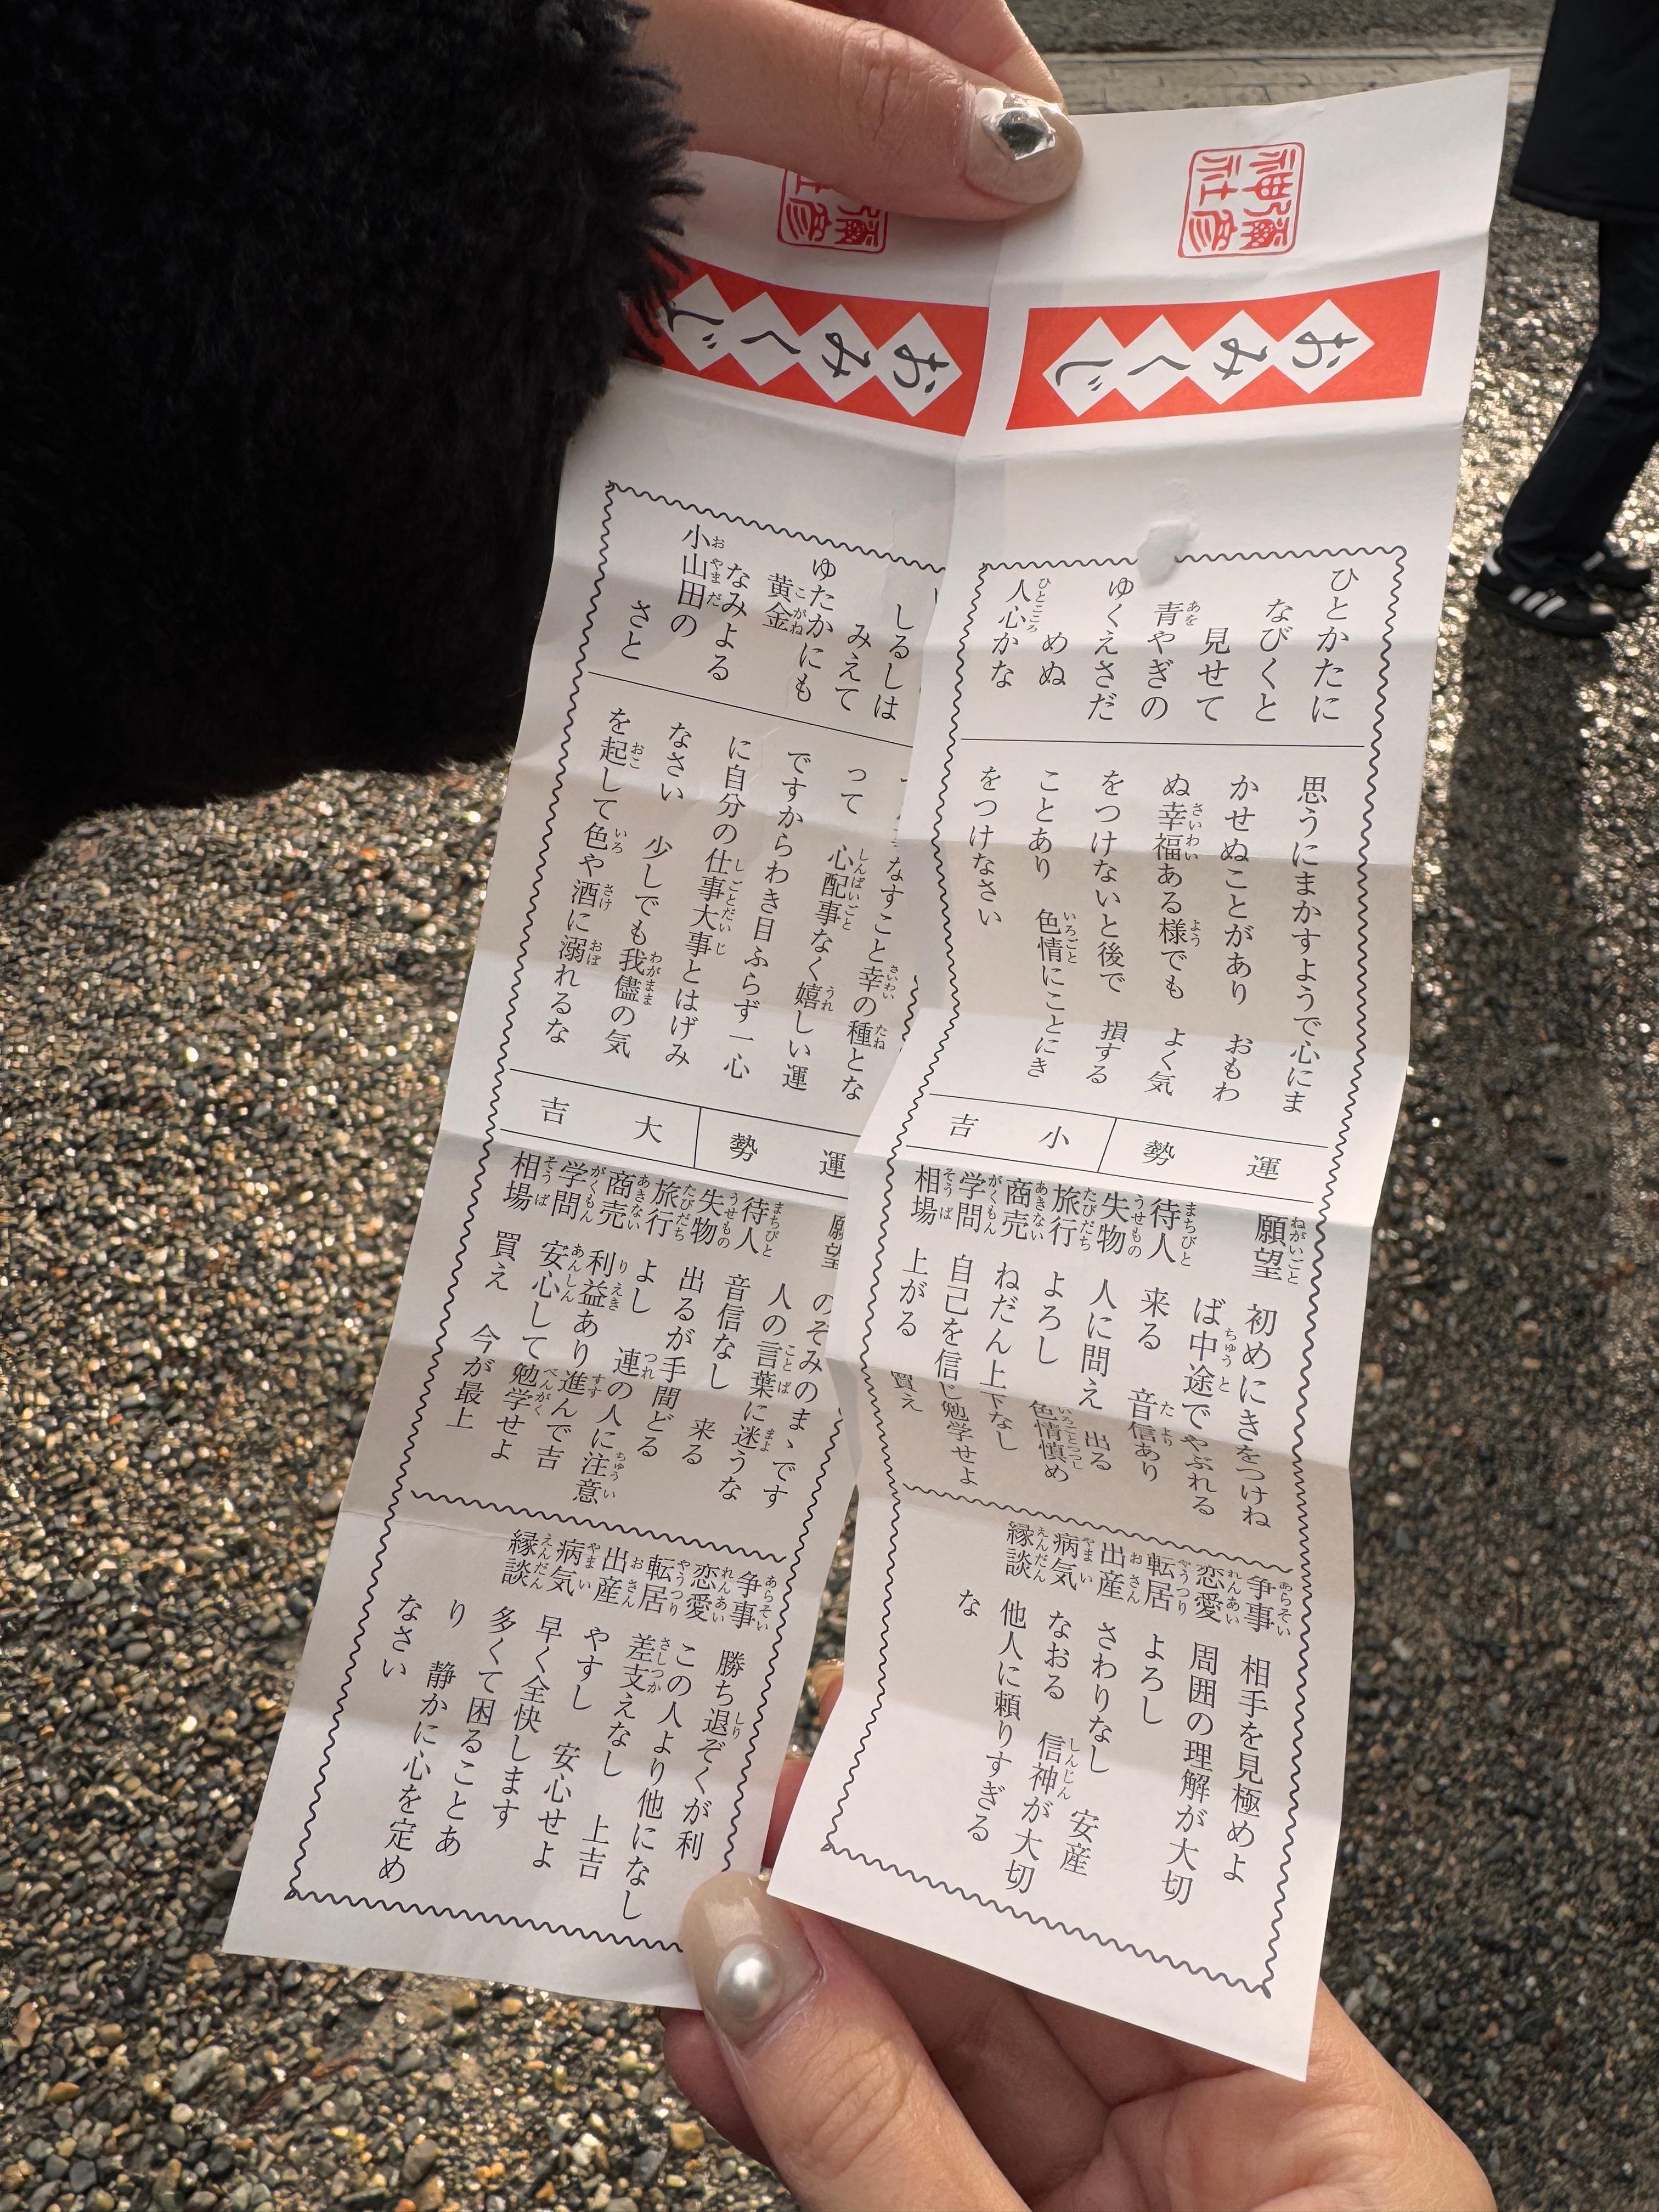 彌彦
神社
おみくじ
ひとかたに
なびくと
見せて
青やぎの
ゆくえさだ
めぬ
人心かな
思うにまかすようで心にま
かせぬことがあり　おもわ
ぬ幸福ある様でも　よく気
をつけないと後で　損する
ことあり　色情にことにき
をつけなさい
運勢　小吉
願望　初めにきをつけね
ば中途でやぶれる
待人　来る　音信あり
失物　人に問え　出る
旅行　よろし　色情慎め
商売　ねだん上下なし
学問　自己を信じ勉学せよ
相場　上がる　買え
争事　相手を見極めよ
恋愛　周囲の理解が大切
転居　よろし
出産　さわりなし　安産
病気　なおる　信神が大切
縁談　他人に頼りすぎる
な
彌彦
社
おみくじ
しるしは
みえて
ゆたかにも
黄金
なみよる
小山田の
さと
なすこと幸の種とな
って　心配事なく嬉しい運
ですからわき目ふらず一心
に自分の仕事大事とはげみ
なさい　少しでも我儘の気
を起して色や酒に溺れるな
運勢　大吉
願望　のぞみのまゝです
人の言葉に迷うな
待人　音信なし　来る
失物　出るが手間どる
旅行　よし　連の人に注意
商売　利益あり進んで吉
学問　安心して勉学せよ
相場　買え　今が最上
争事　勝ち退ぞくが利
恋愛　この人より他になし
転居　差支えなし　上吉
出産　やすし　安心せよ
病気　早く全快します
縁談　多くて困ることあ
り　静かに心を定め
なさい